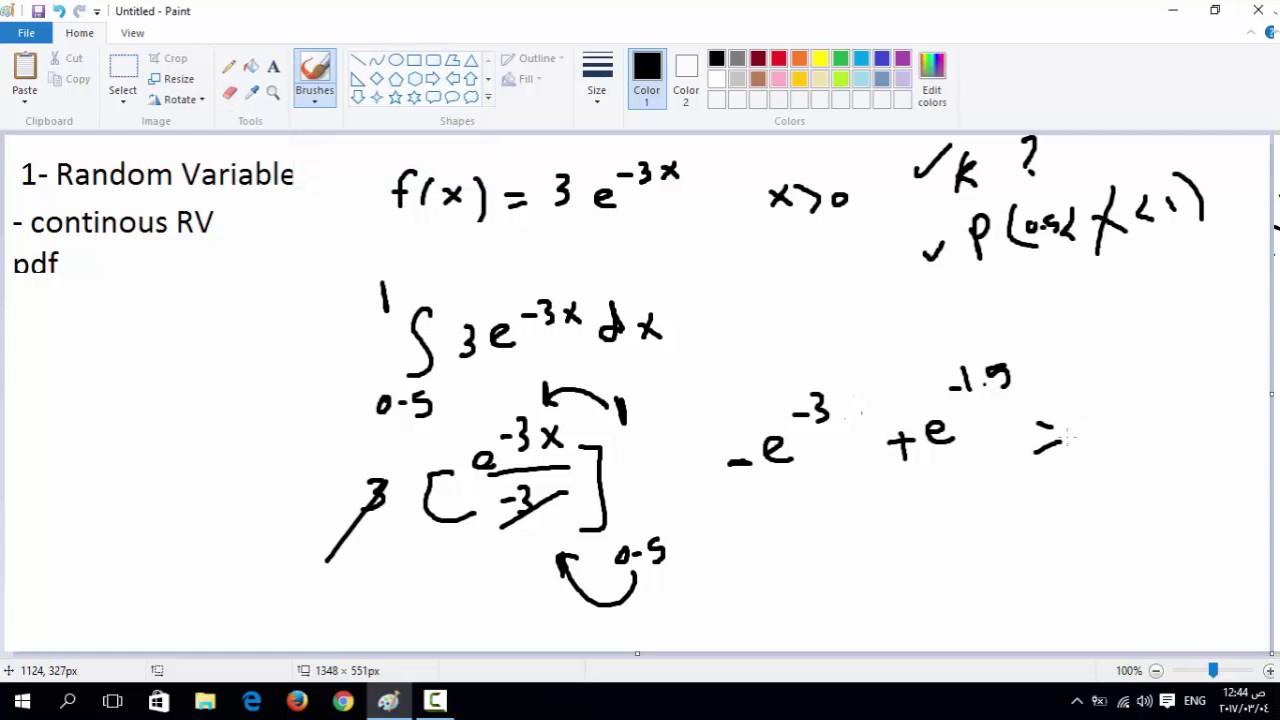 Untitled - Paint
File Home View
Paste Cut Copy Select Crop Resize Rotate Brushes Outline Fill Size Color 1 Color 2 Edit colors
Clipboard Image Tools Shapes Colors
1- Random Variable
- continous RV
pdf
f(x) = 3 e^{-3x} x>0
✓ k ?
✓ p(0.5< X < 1)
\int_{0.5}^{1} 3 e^{-3x} dx
3 [ \frac{e^{-3x}}{-3} ]_{0.5}^{1}
- e^{-3} + e^{-1.5} =
1124, 327px 1348 × 551px 100%
ENG 12:44 ص
٢٠١٧/٠٣/٠٤